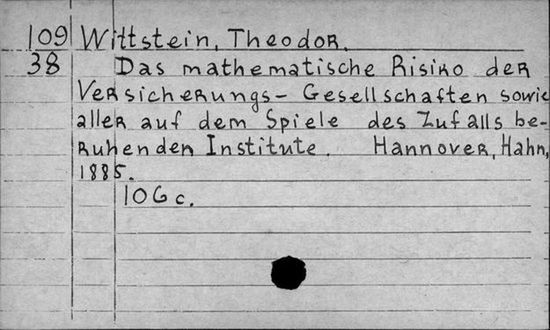 109 Wittstein, Theodor.
38 Das mathematische Risiko der
Versicherungs- Gesellschaften sowie
aller auf dem Spiele des Zufalls be-
ruhenden Institute. Hannover, Hahn,
1885.
106c.